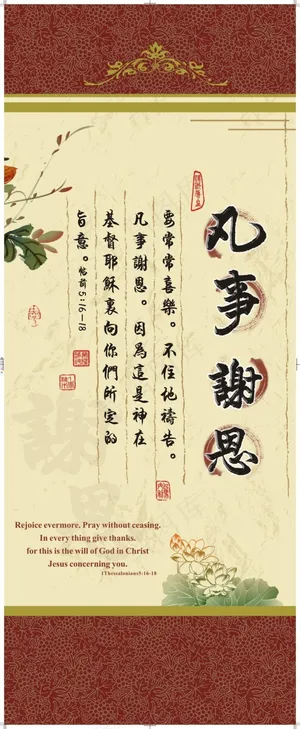 凡事謝恩
要常常喜樂。不住地禱告。
凡事謝恩。因為這是神在
基督耶穌裏向你們所定的
旨意。帖前5:16—18
謝恩
Rejoice evermore. Pray without ceasing.
In every thing give thanks.
for this is the will of God in Christ
Jesus concerning you.
1Thessalonians5:16-18